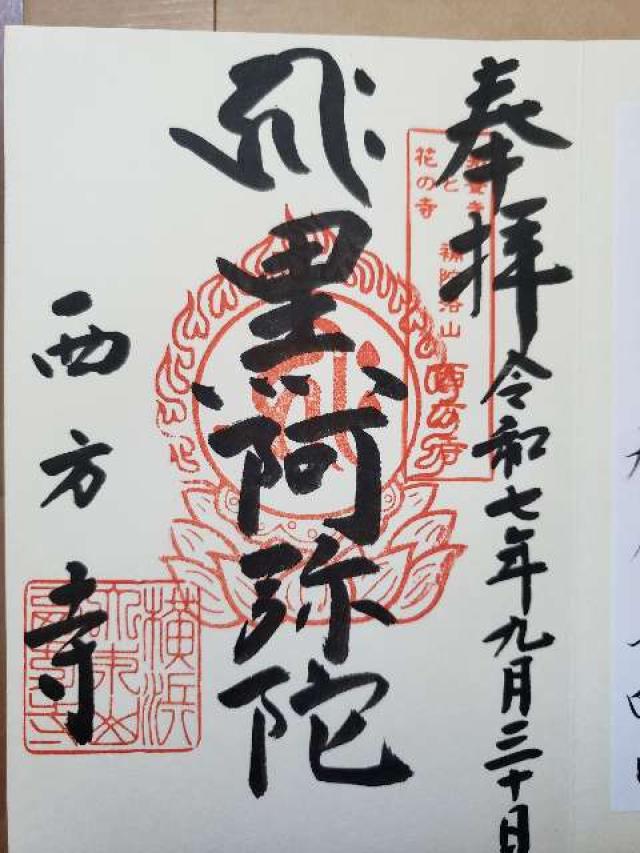 奉拝 令和七年九月三十日
と
花の寺
補陀洛山
西方寺
黒阿弥陀
西方寺
横浜